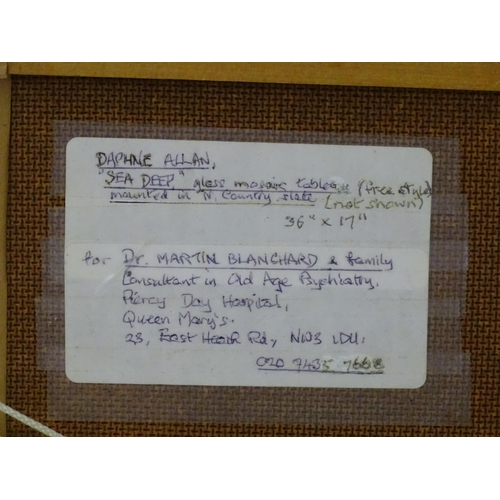 DAPHNE ALLAN,
"SEA DEEP," glass mosaic (free style)
mounted in N. Country slate (not shown)
36" x 17"
for Dr. MARTIN BLANCHARD & family
Consultant in Old Age Psychiatry,
Piercy Day Hospital,
Queen Mary's.
23, East Heath Rd, NW3 1DU.
020 7435